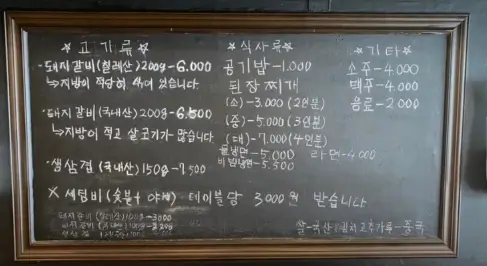 ☆고기류☆
·돼지갈비(칠레산)200g-6.000
↳지방이 적당히 섞여 있습니다.
·돼지갈비(국내산)200g-6.500
↳지방이 적고 살코기가 많습니다.
·생삼겹(국내산)150g-7.500
☆식사류☆
공기밥-1.000
된장찌개
(소)-3.000(2인분)
(중)-5.000(3인분)
(대)-7.000(4인분)
물냉면-5.000
비빔냉면-5.500
☆기타☆
소주-4.000
맥주-4.000
음료-2.000
라면-4.000
※ 세팅비(숯불+야채) 테이블당 3000원 받습니다
돼지갈비(칠레산)100g-3000
돼지갈비(국내산)100g
생삼겹
쌀-국산 김치고추가루-중국